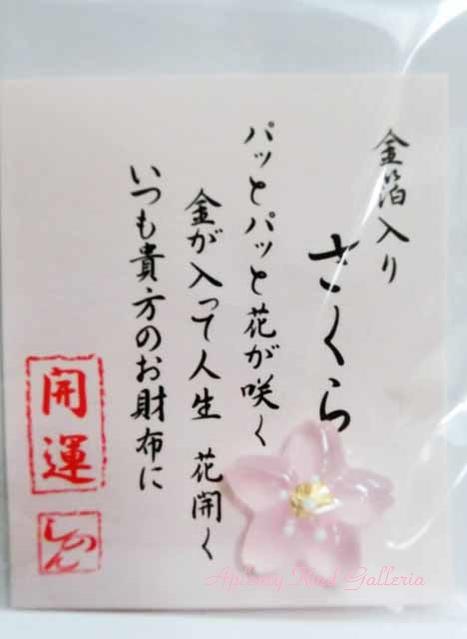 金箔入り
さくら
パッとパッと花が咲く
金が入って人生 花開く
いつも貴方のお財布に
開運
しのん
Aplenty Kind Galleria